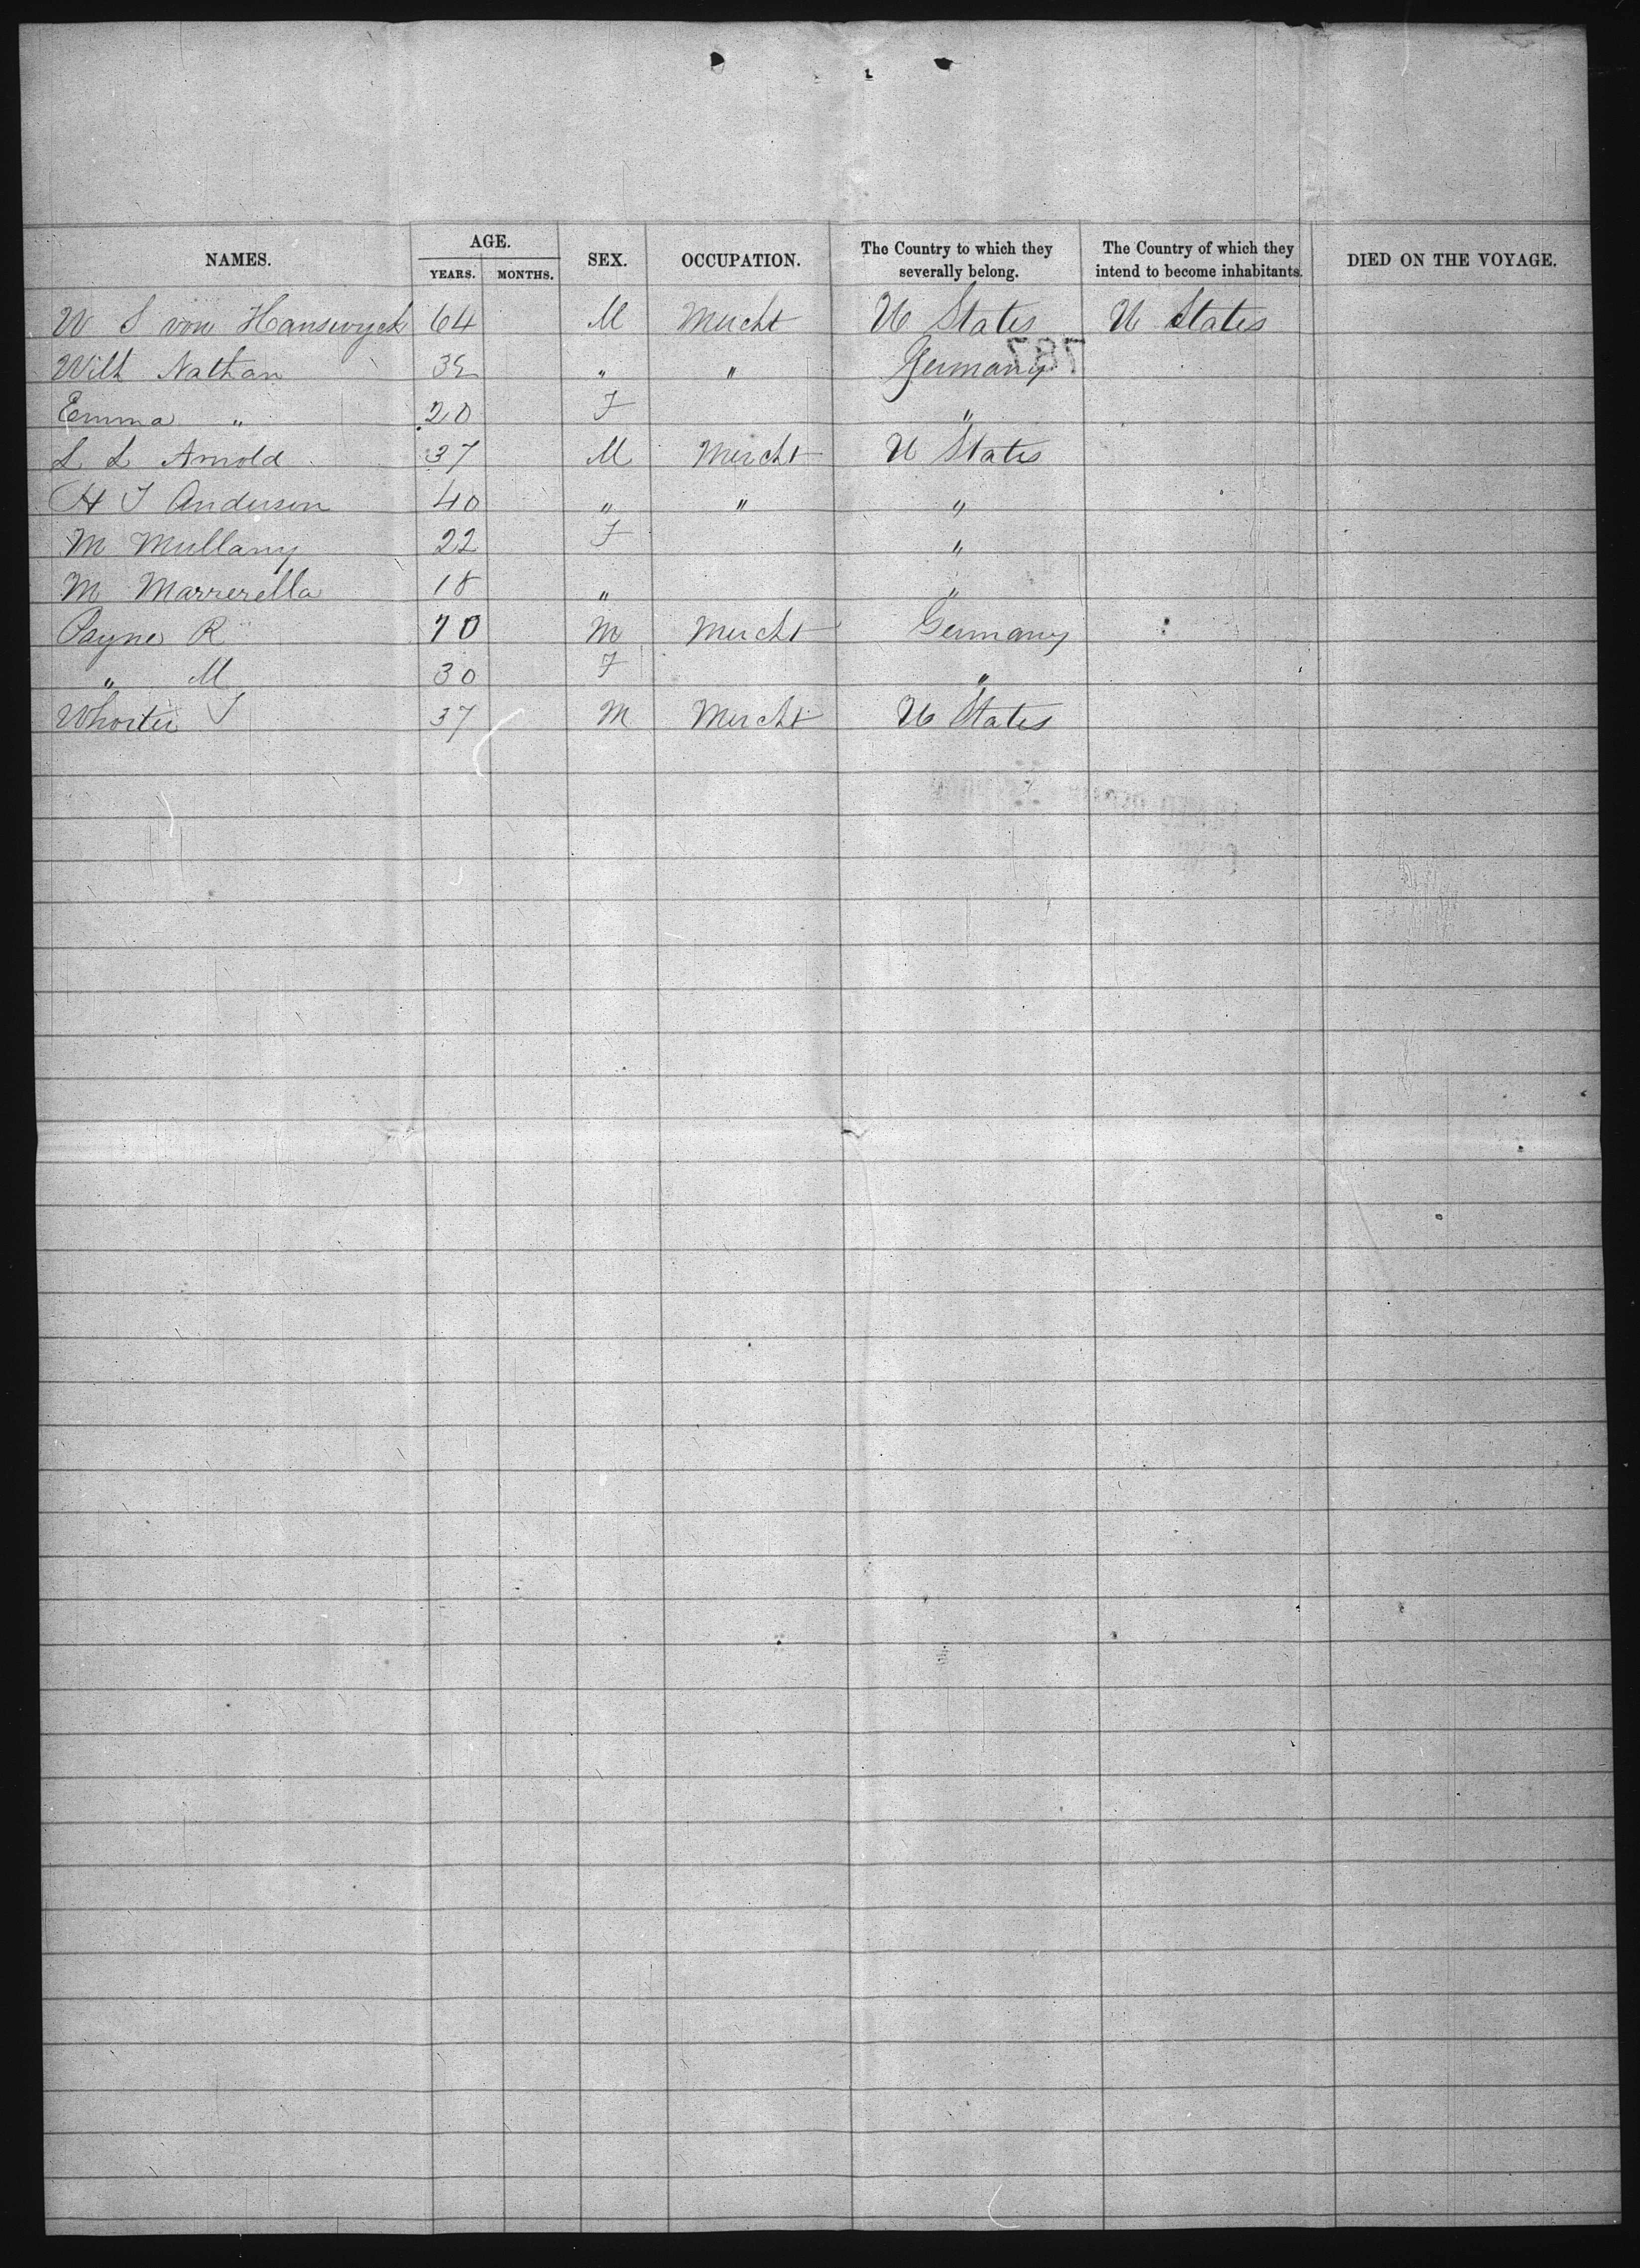 NAMES. AGE. SEX. OCCUPATION. The Country to which they severally belong. The Country of which they intend to become inhabitants. DIED ON THE VOYAGE.
YEARS. MONTHS.
W S von Hanswyck 64 M Mercht U States U States
787
Wilh Nathan 32 " " Germany
Emma " 20 F "
L L Arnold 37 M Mercht U States
H J Anderson 40 " " "
M Mullany 22 F "
M Marrerella 18 " "
Payne R 70 M Mercht Germany
" M 30 F "
Whorter J 37 M Mercht U States